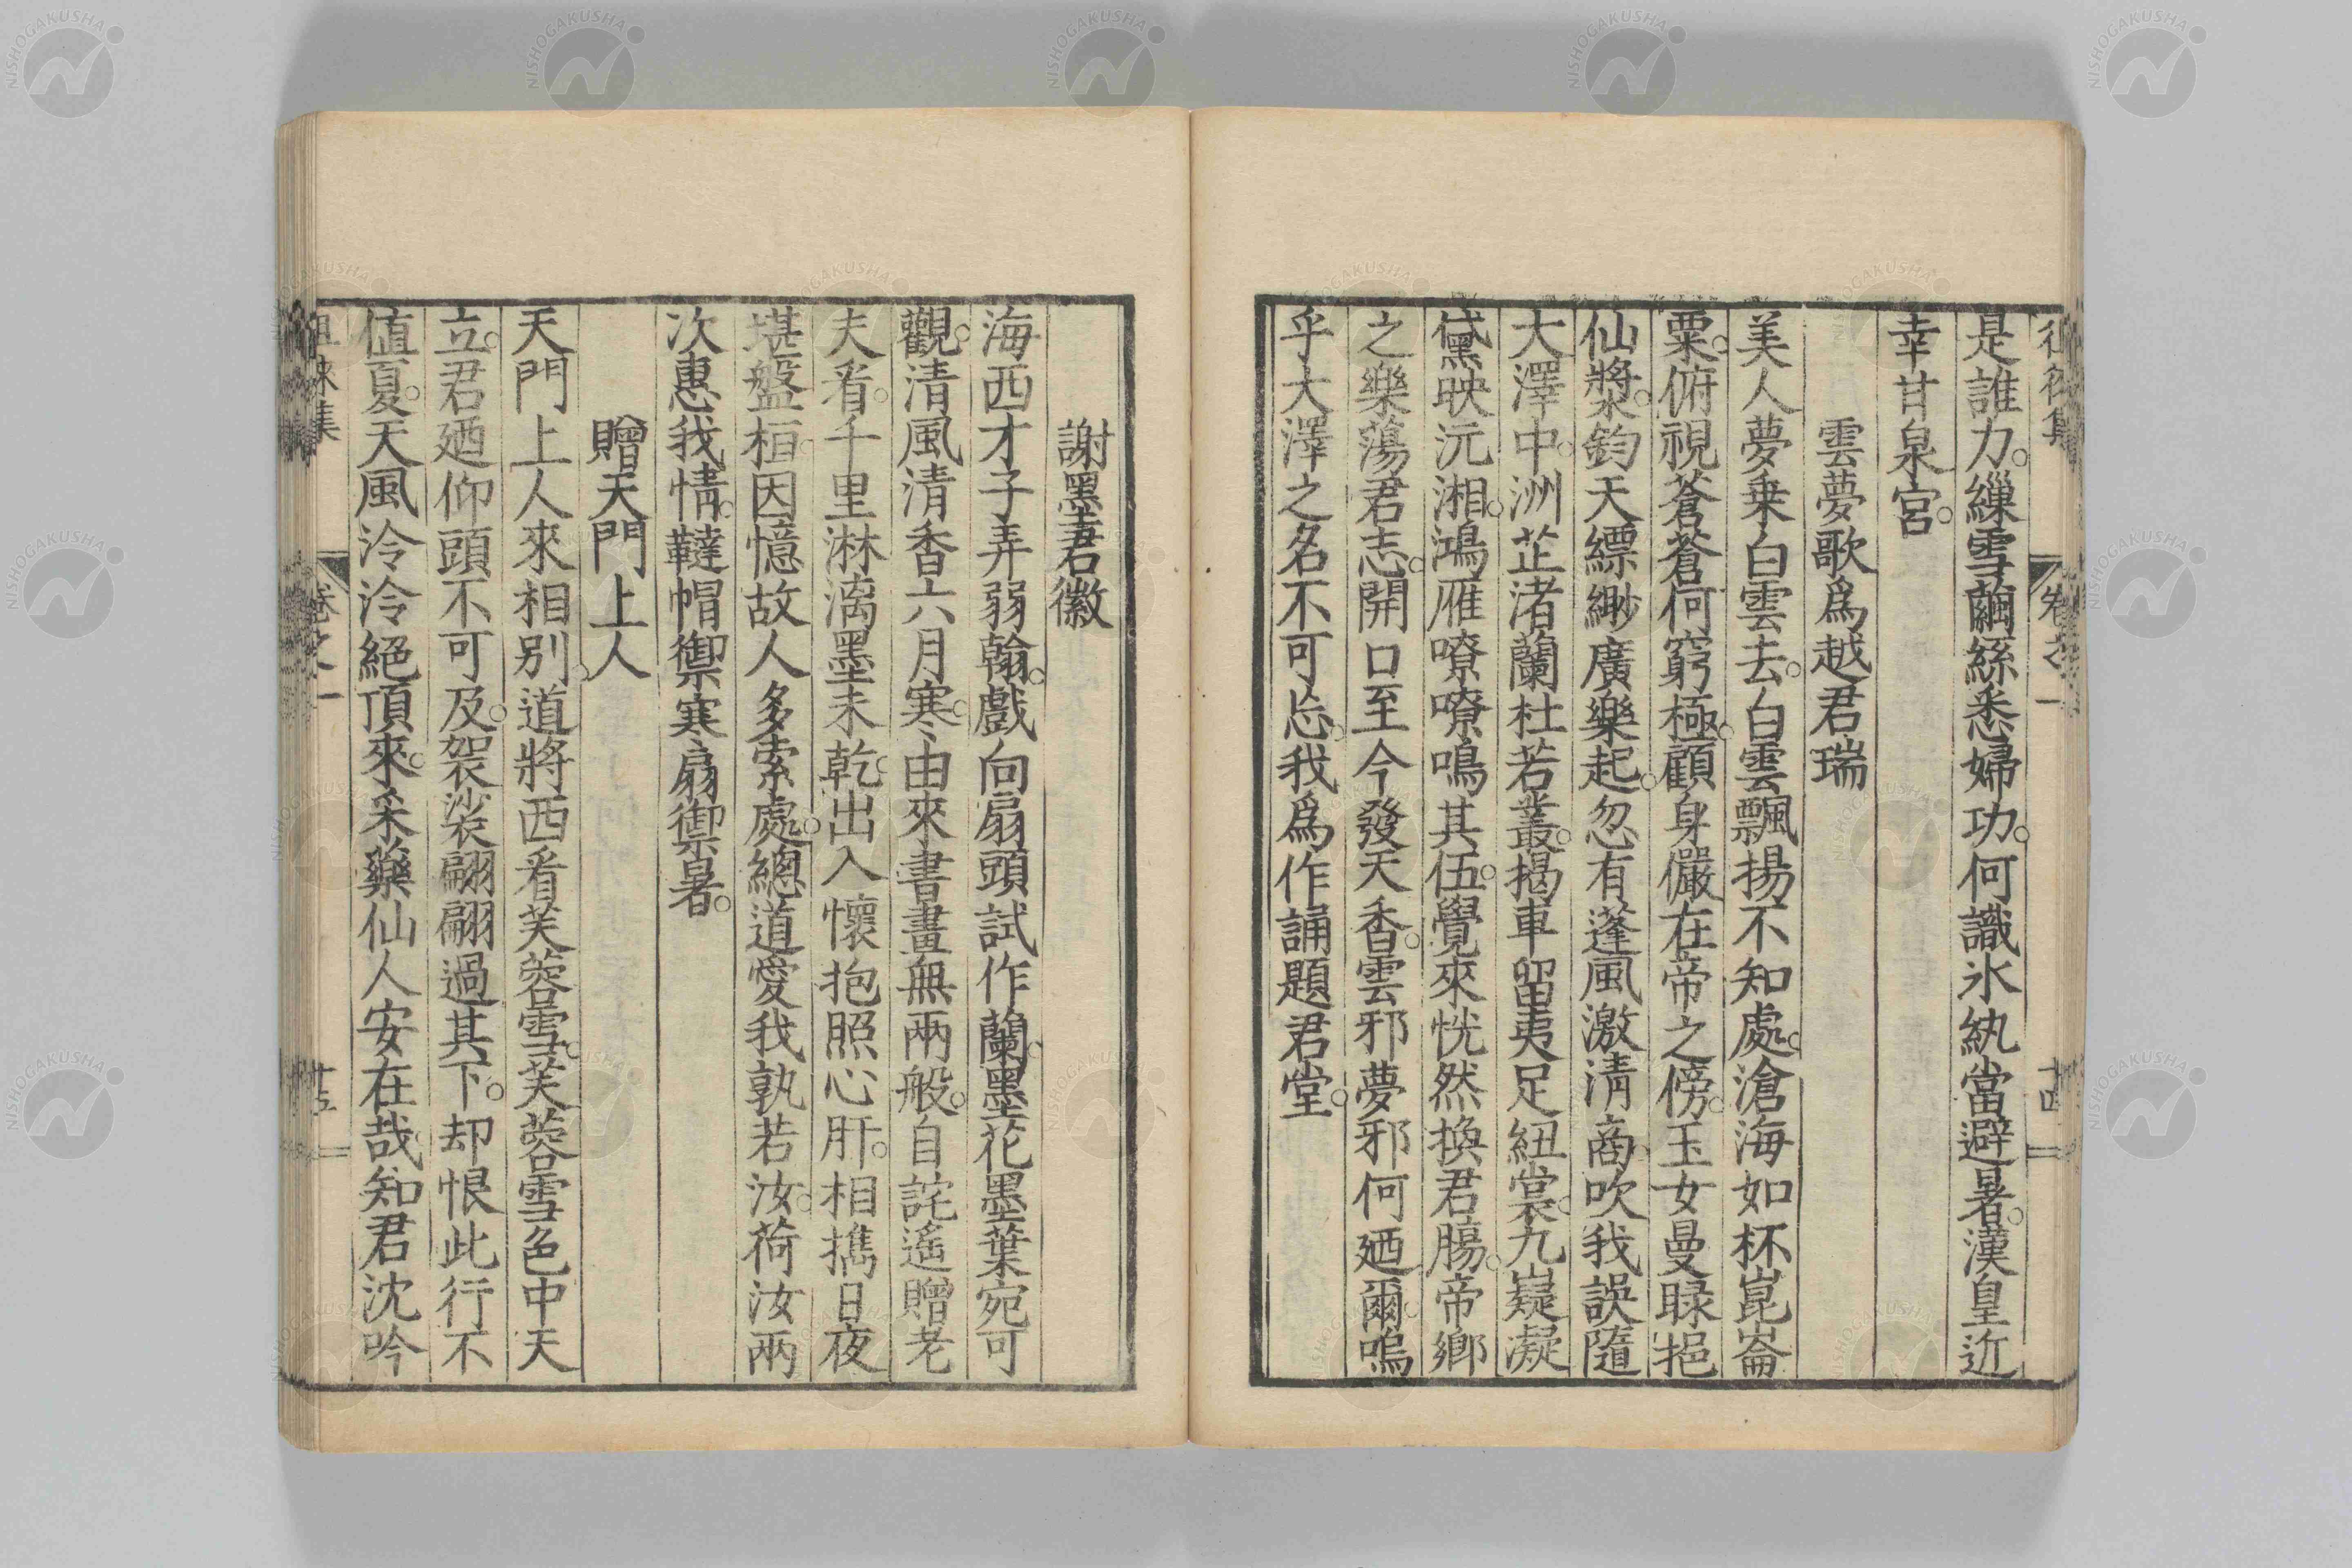 是誰力。繅雪繭絲悉婦功。何識氷紈當避暑。漢皇近
幸甘泉宮。
雲夢歌爲越君瑞
美人夢乗白雲去。白雲飄揚不知處。滄海如杯崑崙
粟。俯視蒼蒼何窮極。顧身儼在帝之傍。玉女曼睩挹
仙漿。鈞天縹緲廣樂起。忽有蓬風激清商。吹我誤隨
大澤中。洲芷渚蘭杜若叢。揭車留夷足紐裳。九嶷凝
黛映沅湘。鴻雁嘹嘹鳴其伍。覺來恍然換君膓。帝鄉
之樂蕩君志。開口至今發天香。雲邪夢邪何廼爾。嗚
乎大澤之名不可忘。我爲作誦題君堂。
卷之一
十四
謝墨君徽
海西才子弄弱翰。戲向扇頭試作蘭。墨花墨葉宛可
觀。清風清香六月寒。由來書畫無兩般。自詫遙贈老
夫看。千里淋漓墨未乾。出入懷抱照心肝。相攜日夜
堪盤桓。因憶故人多索處。總道愛我孰若汝。荷汝兩
次惠我情。韃帽禦寒扇禦暑。
贈天門上人
天門上人來相別。道將西看芙蓉雪。芙蓉雪色中天
立。君廼仰頭不可及。袈裟翩翩過其下。却恨此行不
値夏。天風泠泠絕頂來。采藥仙人安在哉。知君沈吟
徂徠集
卷之一
十五